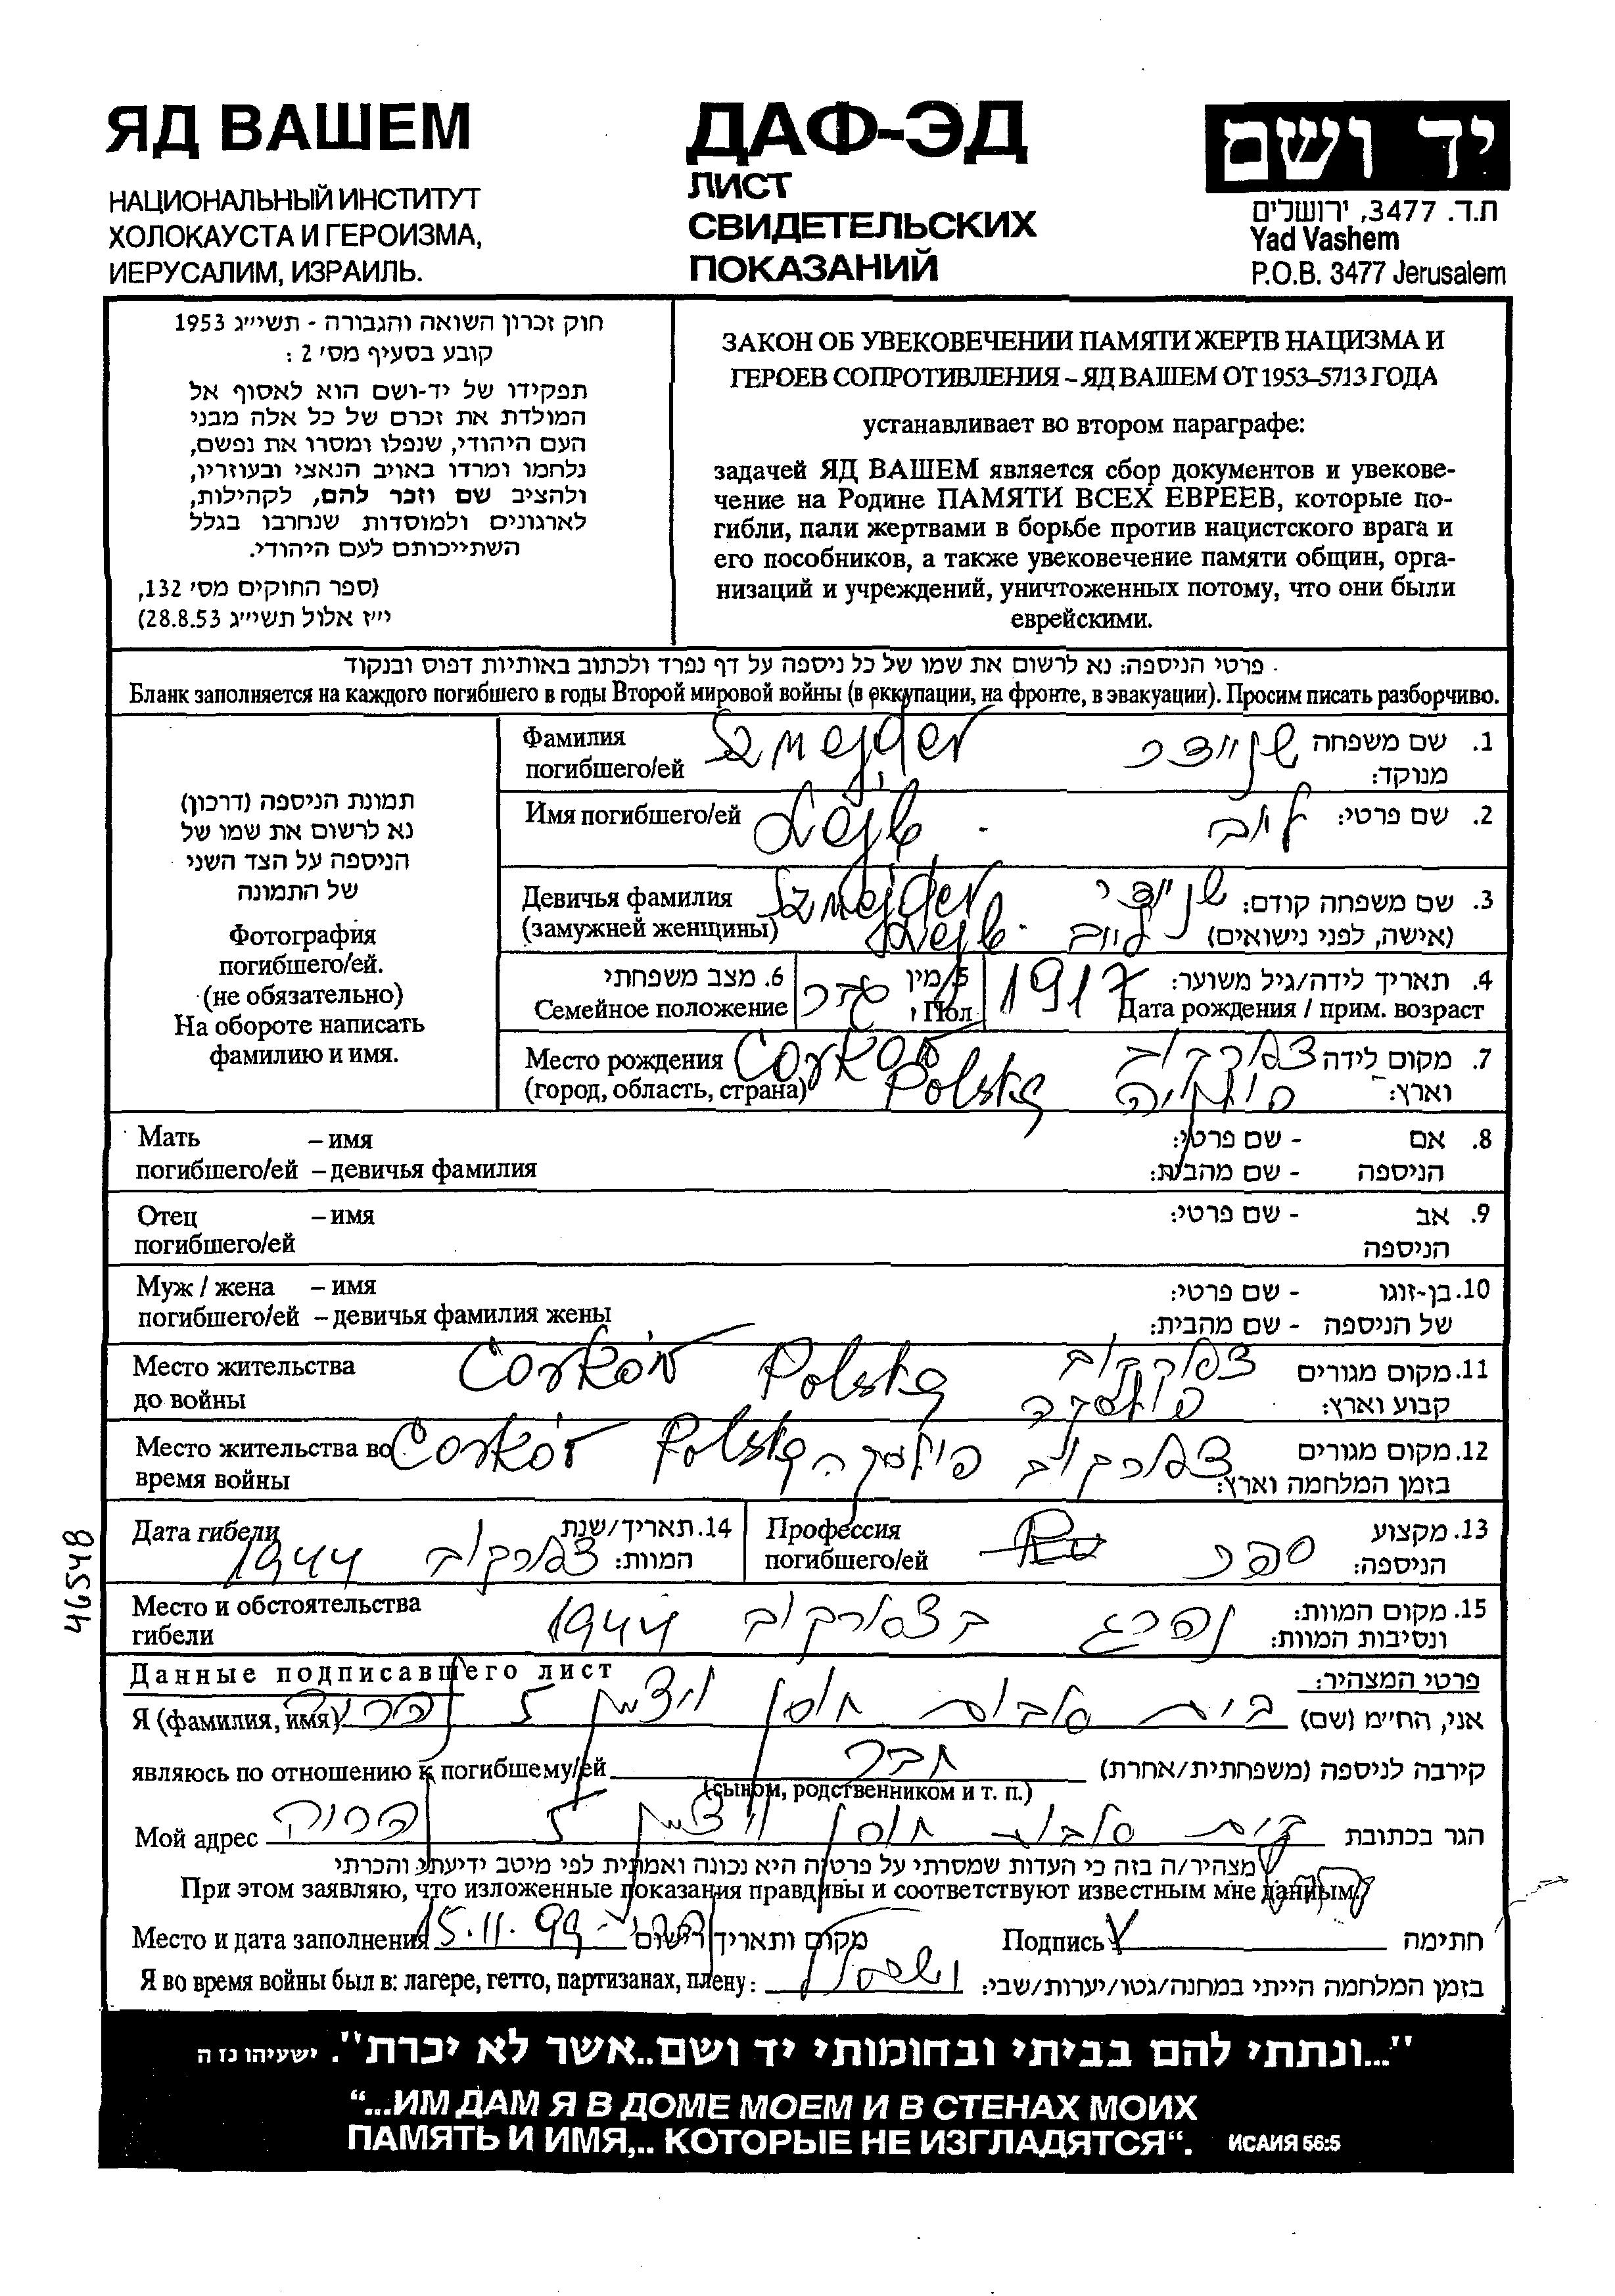 ЯД ВАШЕМ
НАЦИОНАЛЬНЫЙ ИНСТИТУТ
ХОЛОКАУСТА И ГЕРОИЗМА,
ИЕРУСАЛИМ, ИЗРАИЛЬ.
ДАФ-ЭД
ЛИСТ
СВИДЕТЕЛЬСКИХ
ПОКАЗАНИЙ
יד ושם
ת.ד. 3477, ירושלים
Yad Vashem
P.O.B. 3477 Jerusalem
חוק זכרון השואה והגבורה - תשי״ג 1953
קובע בסעיף מס׳ 2 :
תפקידו של יד-ושם הוא לאסוף אל
המולדת את זכרם של כל אלה מבני
העם היהודי, שנפלו ומסרו את נפשם,
נלחמו ומרדו באויב הנאצי ובעוזריו,
ולהציב שם וזכר להם, לקהילות,
לארגונים ולמוסדות שנחרבו בגלל
השתייכותם לעם היהודי.
(ספר החוקים מס׳ 132,
י״ז אלול תשי״ג 28.8.53)
ЗАКОН ОБ УВЕКОВЕЧЕНИИ ПАМЯТИ ЖЕРТВ НАЦИЗМА И
ГЕРОЕВ СОПРОТИВЛЕНИЯ – ЯД ВАШЕМ ОТ 1953–5713 ГОДА
устанавливает во втором параграфе:
задачей ЯД ВАШЕМ является сбор документов и увекове-
чение на Родине ПАМЯТИ ВСЕХ ЕВРЕЕВ, которые по-
гибли, пали жертвами в борьбе против нацистского врага и
его пособников, а также увековечение памяти общин, орга-
низаций и учреждений, уничтоженных потому, что они были
еврейскими.
פרטי הניספה: נא לרשום את שמו של כל ניספה על דף נפרד ולכתוב באותיות דפוס ובנקוד
Бланк заполняется на каждого погибшего в годы Второй мировой войны (в оккупации, на фронте, в эвакуации). Просим писать разборчиво.
תמונת הניספה (דרכון)
נא לרשום את שמו של
הניספה על הצד השני
של התמונה
Фотография
погибшего/ей.
(не обязательно)
На обороте написать
фамилию и имя.
Фамилия Sznejder שניידר 1. שם משפחה
погибшего/ей מנוקד:
Имя погибшего/ей Lejb לייב 2. שם פרטי:
Девичья фамилия Sznejder שניידר 3. שם משפחה קודם:
(замужней женщины) Lejb לייב (אישה, לפני נישואים)
6. מצב משפחתי 5. מין 1917 4. תאריך לידה/גיל משוער:
Семейное положение זכר Пол Дата рождения / прим. возраст
Место рождения 7. מקום לידה
(город, область, страна) Polska פולניה וארץ:
Мать – имя - שם פרטי: 8. אם
погибшего/ей – девичья фамилия - שם מהבית: הניספה
Отец – имя - שם פרטי: 9. אב
погибшего/ей הניספה
Муж / жена – имя - שם פרטי: 10. בן-זוגו
погибшего/ей – девичья фамилия жены - שם מהבית: של הניספה
Место жительства Polska 11. מקום מגורים
до войны פולסקה קבוע וארץ:
Место жительства во Polska פולסקה 12. מקום מגורים
время войны בזמן המלחמה וארץ:
Дата гибели 1944 14. תאריך/שנת המוות:
Профессия ספר 13. מקצוע
погибшего/ей הניספה:
Место и обстоятельства 1944 נהרג 15. מקום המוות:
гибели ונסיבות המוות:
46548
Данные подписавшего лист פרטי המצהיר:
Я (фамилия, имя) בית אבות חוסן ויצמן 5 אני, הח״מ (שם)
являюсь по отношению к погибшему/ей חבר קירבה לניספה (משפחתית/אחרת)
(сыном, родственником и т. п.)
Мой адрес בית אבות חוסן ויצמן 5 הגר בכתובת
מצהיר/ה בזה כי העדות שמסרתי על פרטיה היא נכונה ואמתית לפי מיטב ידיעתי והכרתי
При этом заявляю, что изложенные показания правдивы и соответствуют известным мне данным.
Место и дата заполнения 15.11.99 מקום ותאריך רישום Подпись חתימה
Я во время войны был в: лагере, гетто, партизанах, плену: בזמן המלחמה הייתי במחנה/גטו/יערות/שבי:
"...ונתתי להם בביתי ובחומותי יד ושם..אשר לא יכרת". ישעיהו נז ה
“...ИМ ДАМ Я В ДОМЕ МОЕМ И В СТЕНАХ МОИХ
ПАМЯТЬ И ИМЯ,.. КОТОРЫЕ НЕ ИЗГЛАДЯТСЯ“. ИСАИЯ 56:5